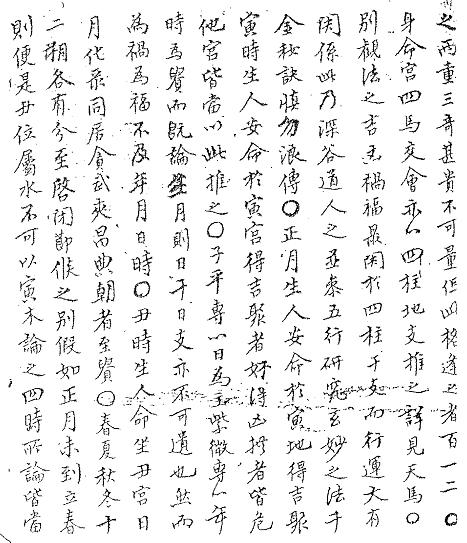 之両重三奇甚貴不可量但此格逢之者百一二〇
身命宮四馬交會亦以四柱地支推之詳見天馬〇
別視法之吉凶禍福最関於四柱干支而行運大有
関係此乃深谷道人之並参五行研究玄妙之法千
金秘訣慎勿浪傳〇正月生人安命於寅地得吉聚
寅時生人安命於寅宮得吉聚者好得凶拱者皆危
他宮皆當以此推之〇子平專以日為主紫微專以年
時為貴而既論生月則日干日支亦不可遺也然而
為禍為福不及年月日時〇丑時生人命坐丑宮日
月化祿同居貪武爽昌典朝者至貴〇春夏秋冬十
二朔各有分至啓閉節候之別假如正月未到立春
則便是丑位屬水不可以寅木論之四時所論皆當